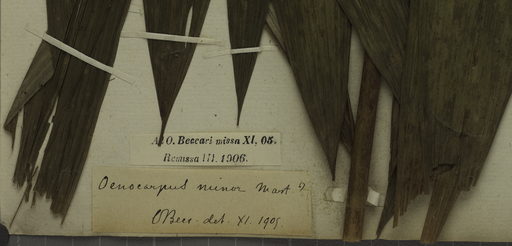 Ad O. Beccari missa XI, 05.
Remissa III. 1906.
Oenocarpus minor Mart?
OBecc. det. XI. 1905